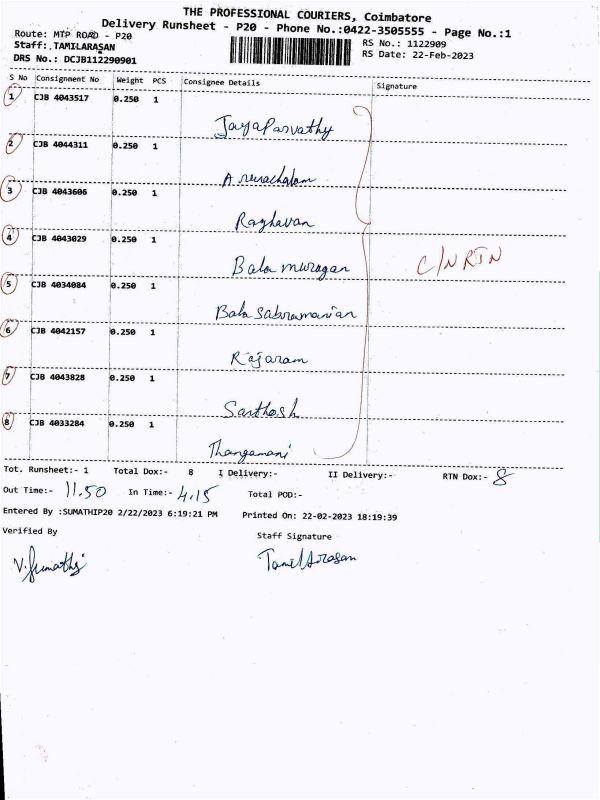 THE PROFESSIONAL COURIERS, Coimbatore
Delivery Runsheet - P20 - Phone No.:0422-3505555 - Page No.:1
Route: MTP ROAD - P20
Staff: TAMILARASAN
RS No.: 1122909
DRS No.: DCJB112290901
RS Date: 22-Feb-2023
S No Consignment No Weight PCS Consignee Details Signature
1 CJB 4043517 0.250 1
JayaParvathy
2 CJB 4044311 0.250 1
Arunachalam
3 CJB 4043606 0.250 1
Raghavan
4 CJB 4043029 0.250 1
Bala murugan
C/N RTN
5 CJB 4034084 0.250 1
Bala Sabramanian
6 CJB 4042157 0.250 1
Rajaram
7 CJB 4043828 0.250 1
Santhosh
8 CJB 4033284 0.250 1
Thangamani
Tot. Runsheet:- 1 Total Dox:- 8 I Delivery:- II Delivery:- RTN Dox:- 8
Out Time:- 11.50 In Time:- 4.15 Total POD:-
Entered By :SUMATHIP20 2/22/2023 6:19:21 PM Printed On: 22-02-2023 18:19:39
Verified By Staff Signature
V. Sumathi TamilArasan